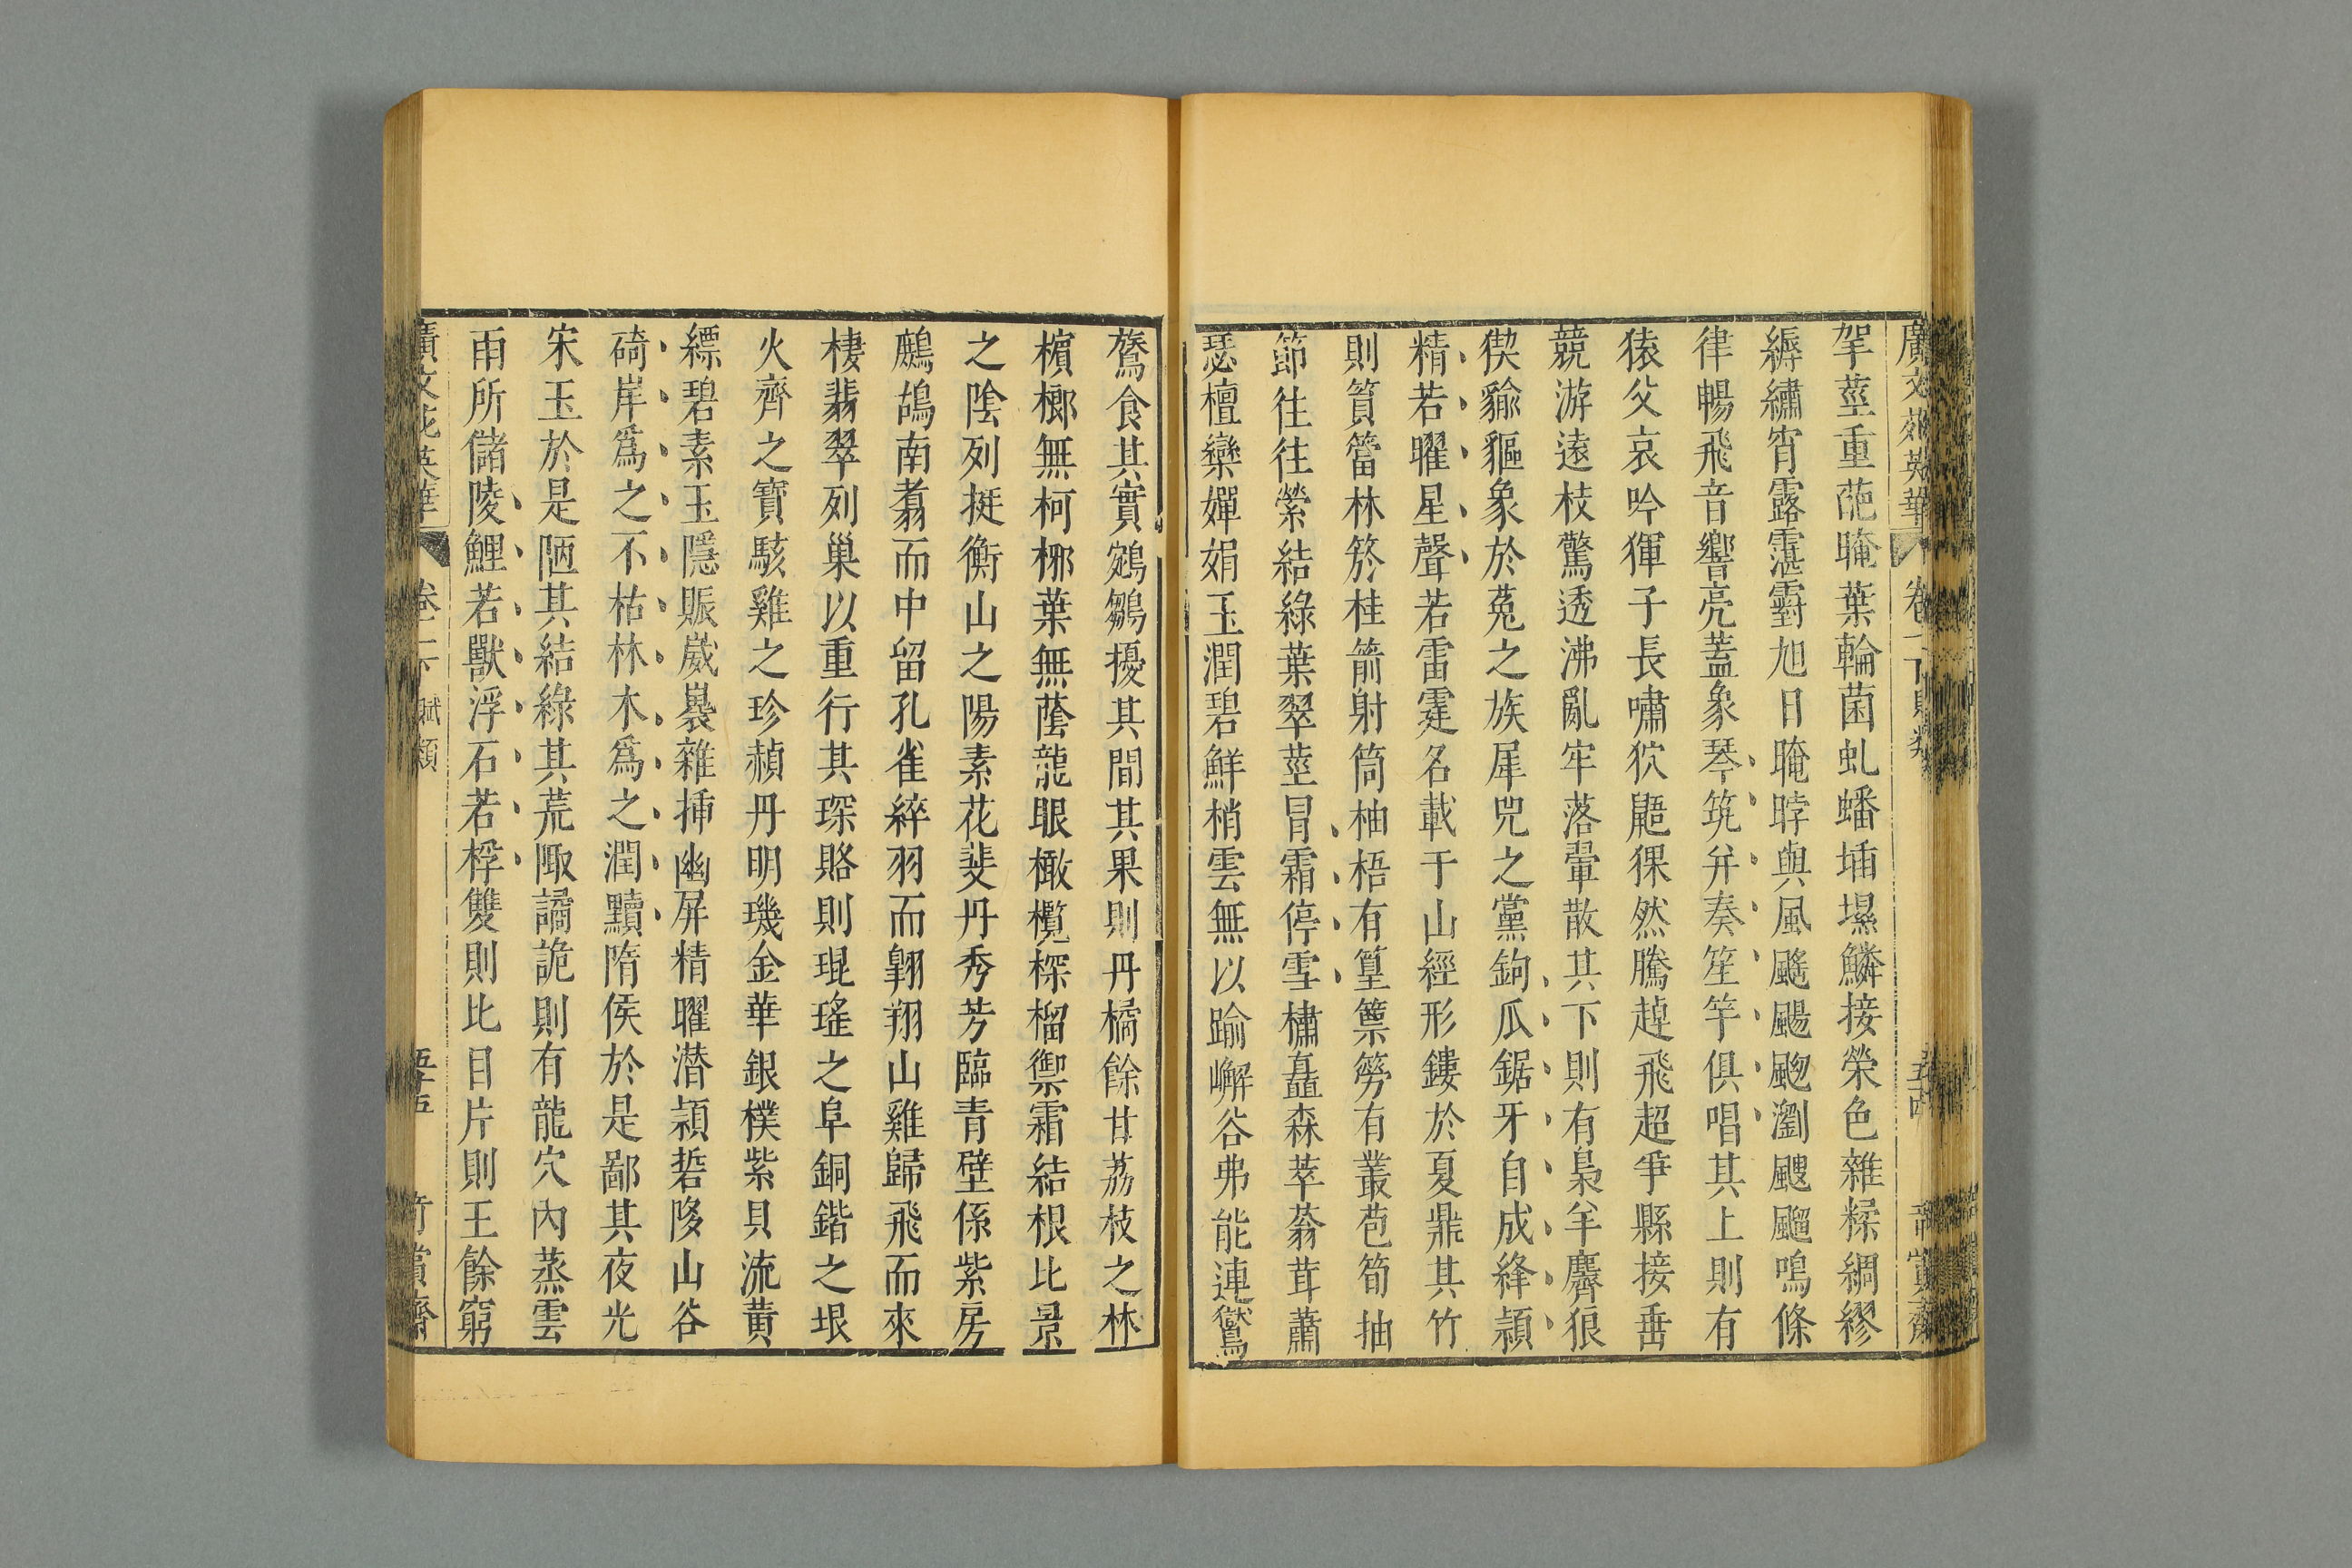 廣文苑英華 卷二下 賦類 五十四 竒賞齋
挐莖重葩晻葉輪菌虬蟠埇㙷鱗接榮色雜糅綢繆
縟繡宵露霮䨴旭日晻䁏與風飈颺颮瀏颼飀鳴條
律暢飛音響亮蓋象琴筑并奏笙竽俱唱其上則有
猿父哀吟㹯子長嘯狖鼯猓然騰趠飛超爭縣接垂
競游遠枝驚透沸亂牢落翬散其下則有梟羊麡狼
猰㺄貙象於菟之族犀兕之黨鉤瓜鋸牙自成絳穎
精若曜星聲若雷霆名載于山經形鏤於夏鼎其竹
則篔簹林箊桂箭射筒柚梧有篁篻簩有叢苞筍抽
節往往縈結綠葉翠莖冒霜停雪橚矗森萃蓊茸蕭
瑟檀欒嬋娟玉潤碧鮮梢雲無以踰嶰谷弗能連鸑
鷟食其實鵷鶵擾其間其果則丹橘餘甘荔枝之林
檳榔無柯椰葉無蔭龍眼橄欖棎榴禦霜結根比景
之陰列挺衡山之陽素花斐丹秀芳臨青壁係紫房
鷓鴣南翥而中留孔雀綷羽而翱翔山雞歸飛而來
棲翡翠列巢以重行其琛賂則琨瑤之阜銅鍇之垠
火齊之寶駭雞之珍赬丹明璣金華銀樸紫貝流黃
縹碧素玉隱賑崴裊雜揷幽屏精曜潛穎硩陊山谷
碕岸爲之不枯林木爲之潤黷隋侯於是鄙其夜光
宋玉於是陋其結綠其荒陬譎詭則有龍穴內蒸雲
雨所儲陵鯉若獸浮石若桴雙則比目片則王餘窮
廣文苑英華 卷二下 賦類 五十五 竒賞齋